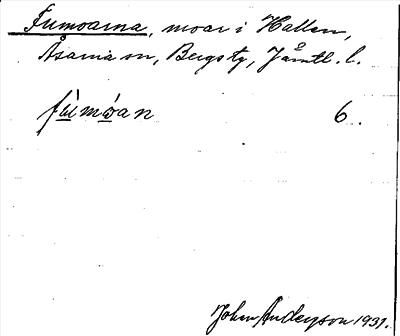 Fumoarna, moar i Hallen,
Åsarna sn, Bergs tg, Jämtl. l.
fùmóan 6.
John Anderson 1931.